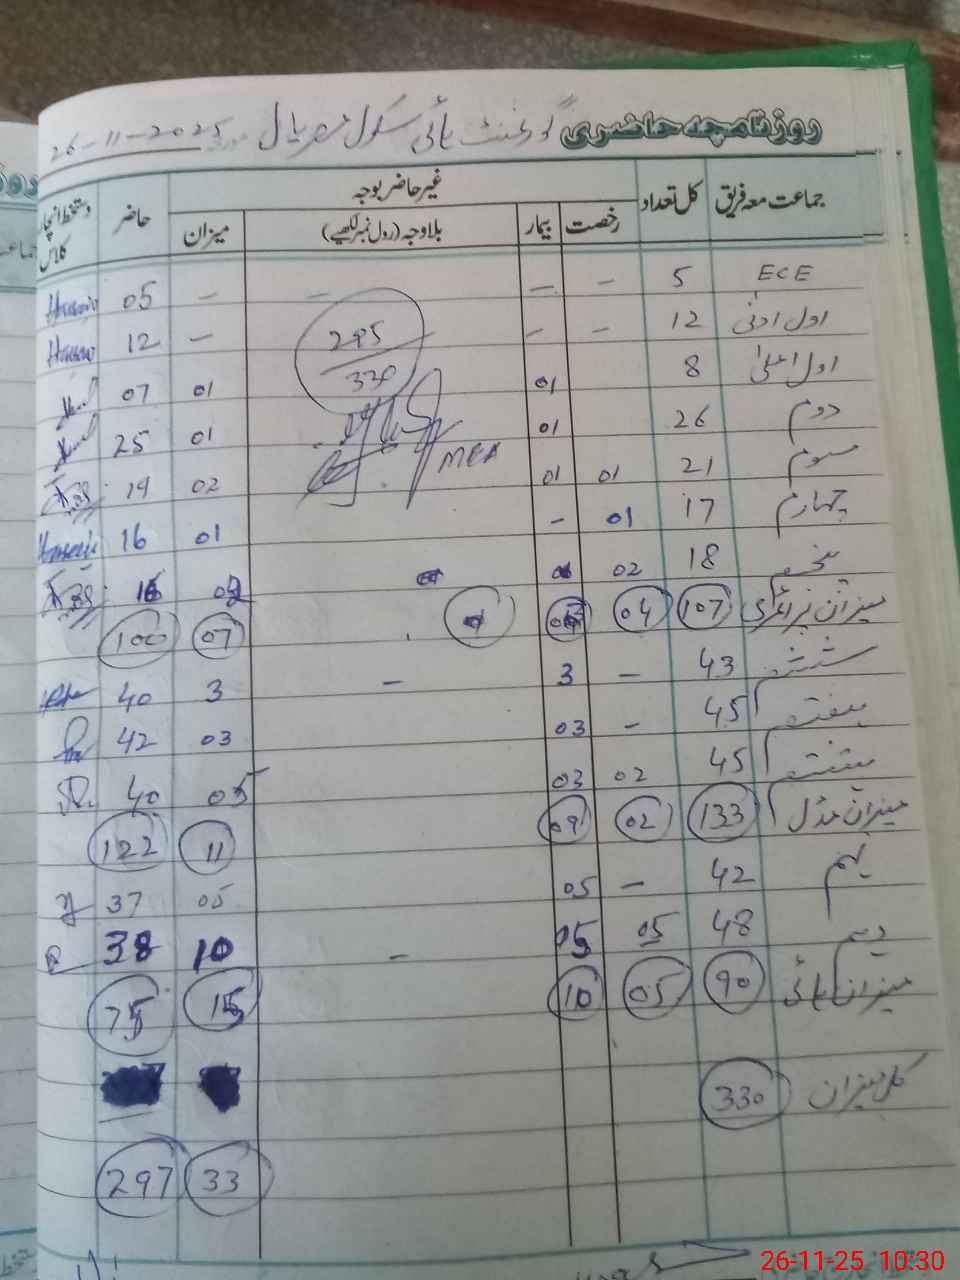 روزنامچہ حاضری گورنمنٹ ہائی سکول 26-11-2025
جماعت معہ فریق کل تعداد غیر حاضر بوجہ حاضر دستخط انچارج کلاس
رخصت بیمار بلاوجہ (رول نمبر لکھیے) میزان
ECE 5 – – – – 05
اول ادنیٰ 12 – – – 12
295
330
اول اعلیٰ 8 01 01 07
دوم 26 01 01 25
MEA
سوم 21 01 01 02 19
چہارم 17 01 – 01 16
پنجم 18 02 02 16
میزان پرائمری 107 04 07 100
ششم 43 – 3 – 3 40
ہفتم 45 – 03 03 42
ہشتم 45 02 03 05 40
میزان مڈل 133 02 09 11 122
نہم 42 – 05 05 37
دہم 48 05 05 – 10 38
میزان ہائی 90 05 10 15 75
کل میزان 330
33 297
26-11-25 10:30